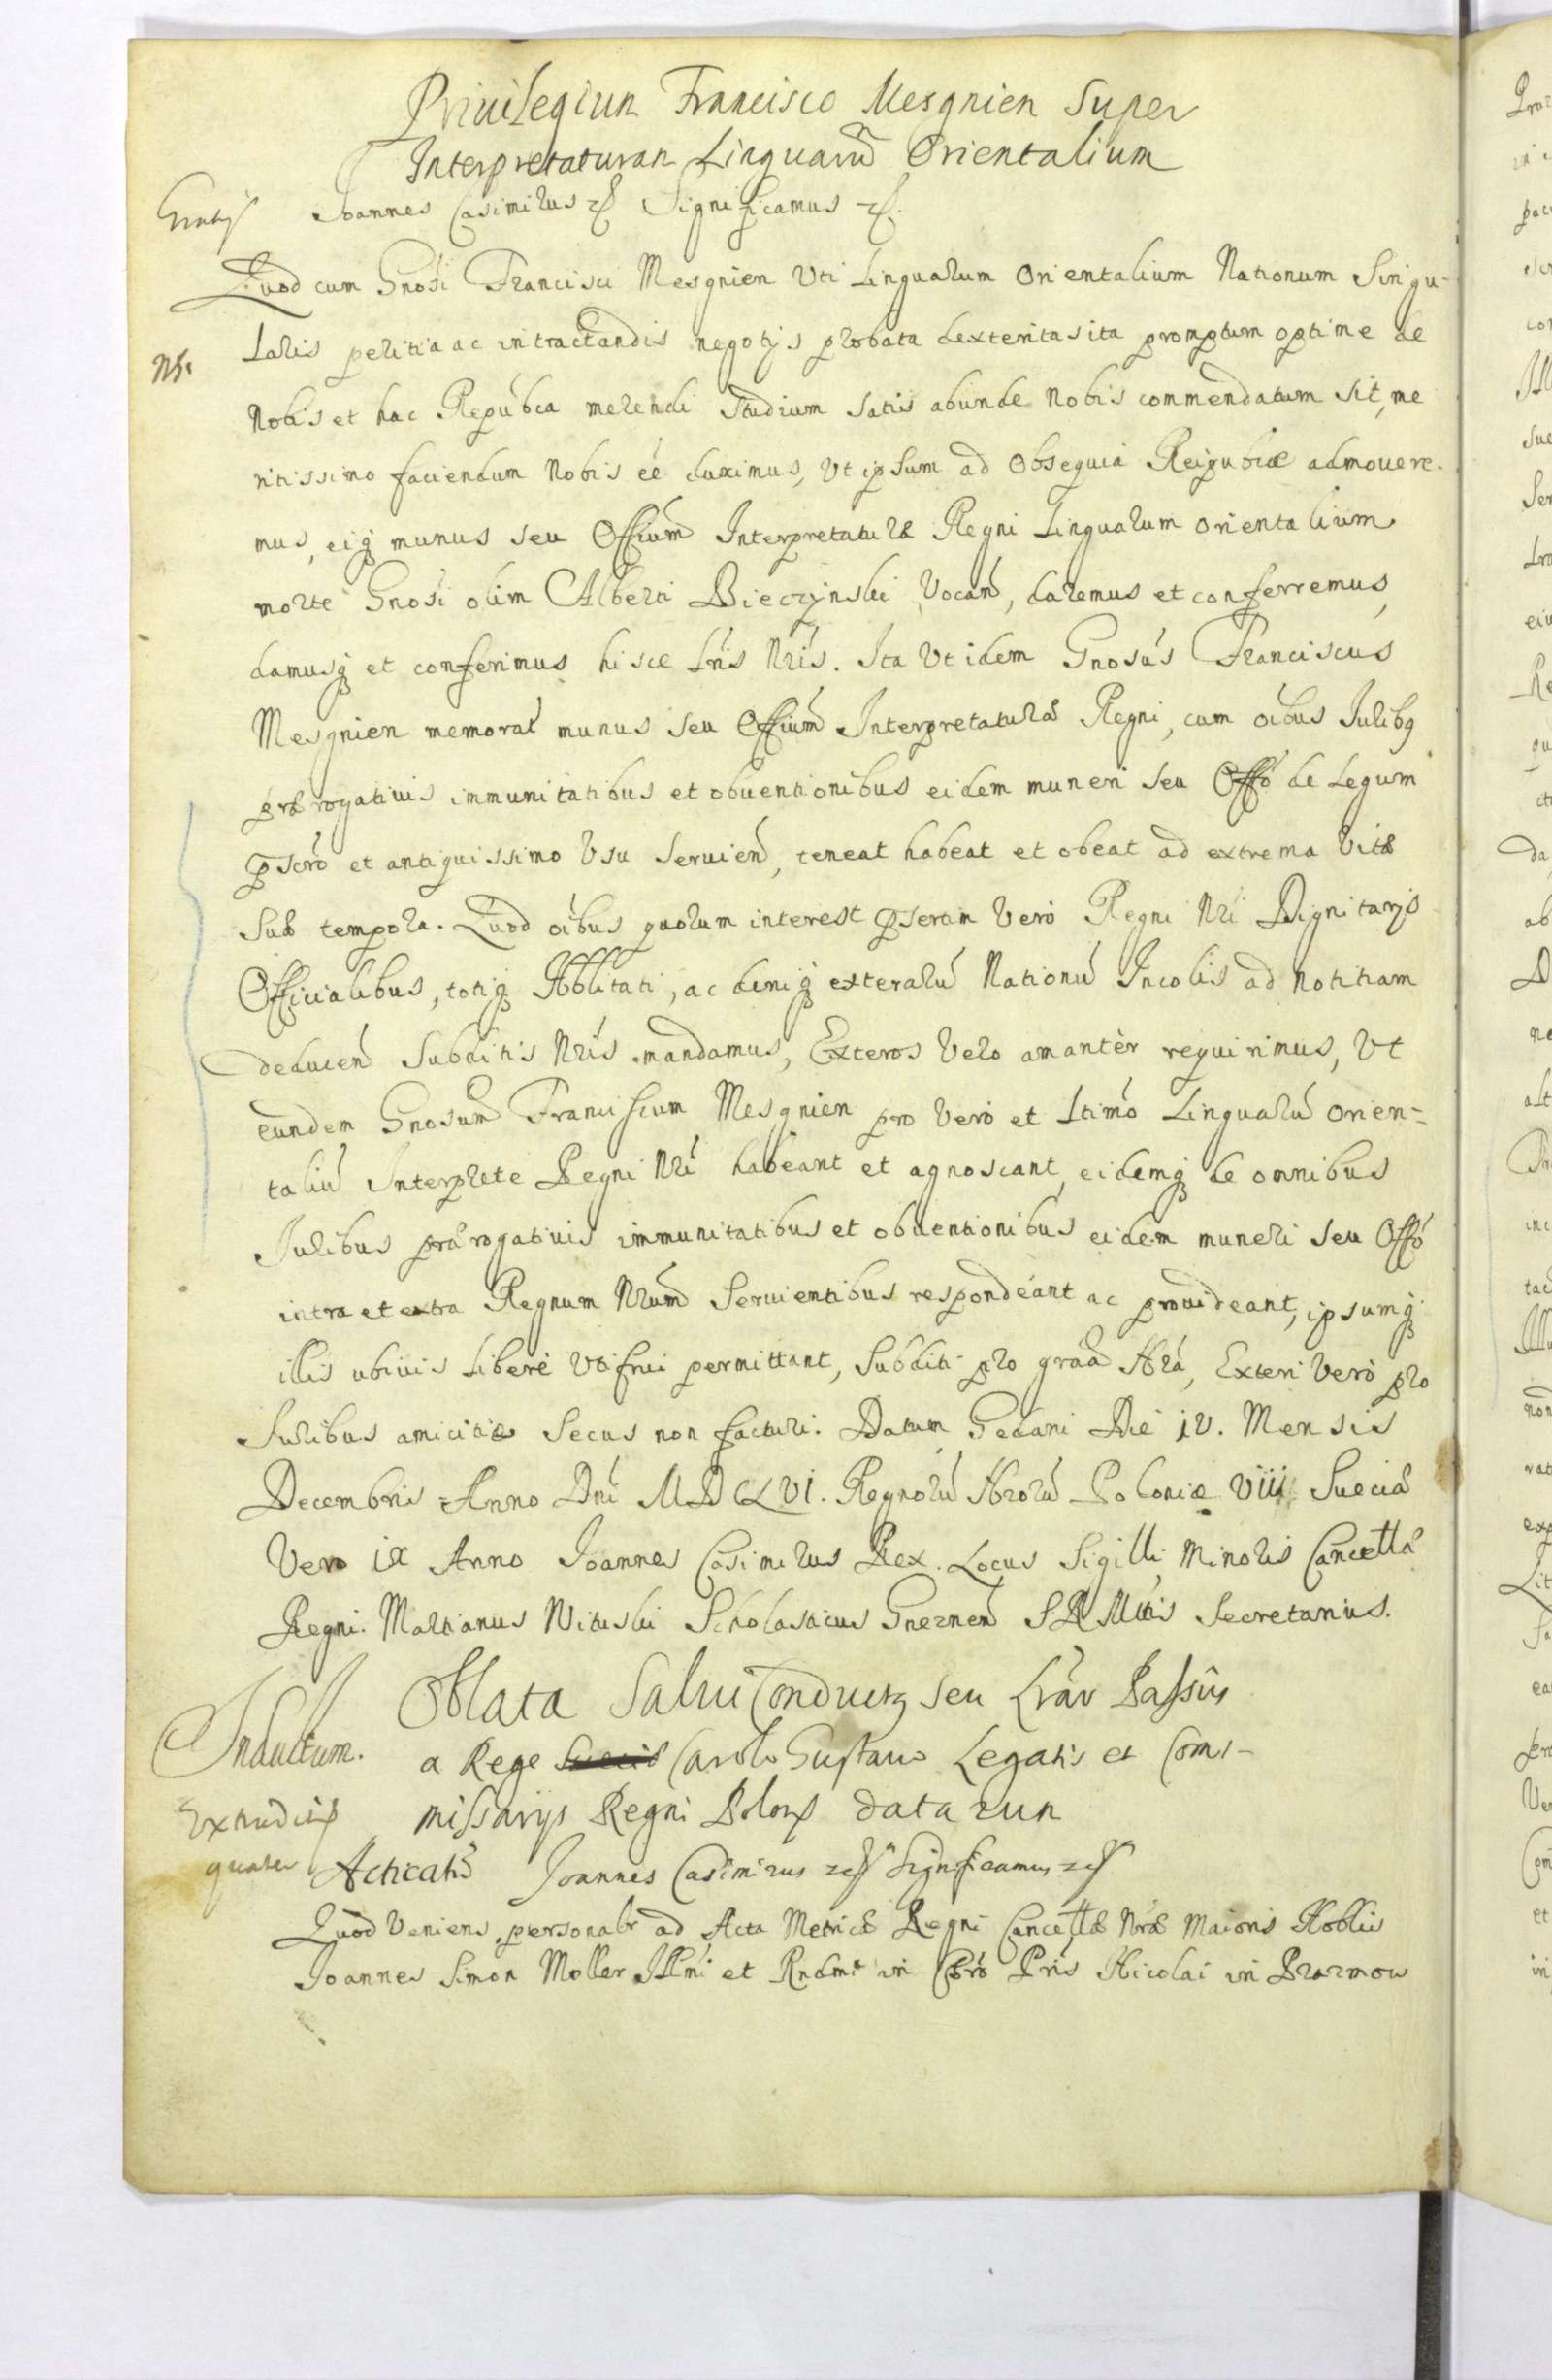 Priuilegium Francisco Mesgnien Super
Interpretaturam Linguarũ Orientalium
Gratis
Joannes Casimirus etc Significamus etc.
Quod cum Gnosi Francisci Mesgnien Uti Linguarum Orientalium Nationum Singu-
NB.
laris peritia ac in tractandis negotijs probata dexteritas ita promptum optime de
Nobis et hac Repubca merendi Studium satis abunde Nobis commendatum sit, me
ritissimo faciendum Nobis ée duximus, Ut ipsum ad Obsequia Reipubcæ admouere-
mus, eiq munus seu Offium Interpretaturæ Regni Linguarum orientalium
morte Gnosi olim Alberti Bieczynski Vocan, daremus et conferremus,
damusq et conferimus hisce Lris Nris. Ita Ut idem Gnosus Franciscus
Mesgnien memorat munus seu Offium Interpretaturæ Regni, cum oibus Juribq
prærogatiuis immunitatibus et obuentionibus eidem muneri seu Offo de Legum
pscro et antiquissimo Usu seruien, teneat habeat et obeat ad extrema Vitæ
Suæ tempora. Quod oibus quorum interest pserim Vero Regni Nri Dignitarijs
Officialibus, totiq Nobilitati, ac deniq exterarũ Nationũ Incolis ad Notitiam
deducen Subditis Nris mandamus, Exteros Vero amantèr requirimus, Ut
eundem Gnosum Franciscum Mesgnien pro Vero et Ltimo Linguarũ Orien=
taliũ Interprete Regni Nri habeant et agnoscant, eidemq de omnibus
Juribus prærogatiuis immunitatibus et obuentionibus eidem muneri seu Offo
intra et extra Regnum Nrum Seruientibus respondeant ac prouideant, ipsumq
illis ubiuis liberè Utifrui permittant, Subditi pro graã Nra, Exteri Verò pro
Juribus amicitiæ Secus non facturi. Datum Gedani Die iv. Mensis
Decembris Anno Dni MDCLVI. Regnorũ Nrorũ Poloniæ Viii Sueciæ
Vero ix Anno Joannes Casimirus Rex. Locus Sigilli Minoris Cancellæ
Regni. Martianus Wituski Scholasticus Gneznen SRMttis Secretarius.
Oblata Salui Conductq seu Lrar Passûs
Inductum.
a Rege Carolo Gustauo Legatis et Com-
missarijs Regni Polon datarum
Extraditũ
quater
Acticatũ Joannes Casimirus etc Significamus etc
Quod Veniens personalr ad Acta Metricæ Regni Cancellæ Nræ Maioris Noblis
Joannes Simon Moller Illmi et Rndmi in Chro Pris Nicolai in Prazmow